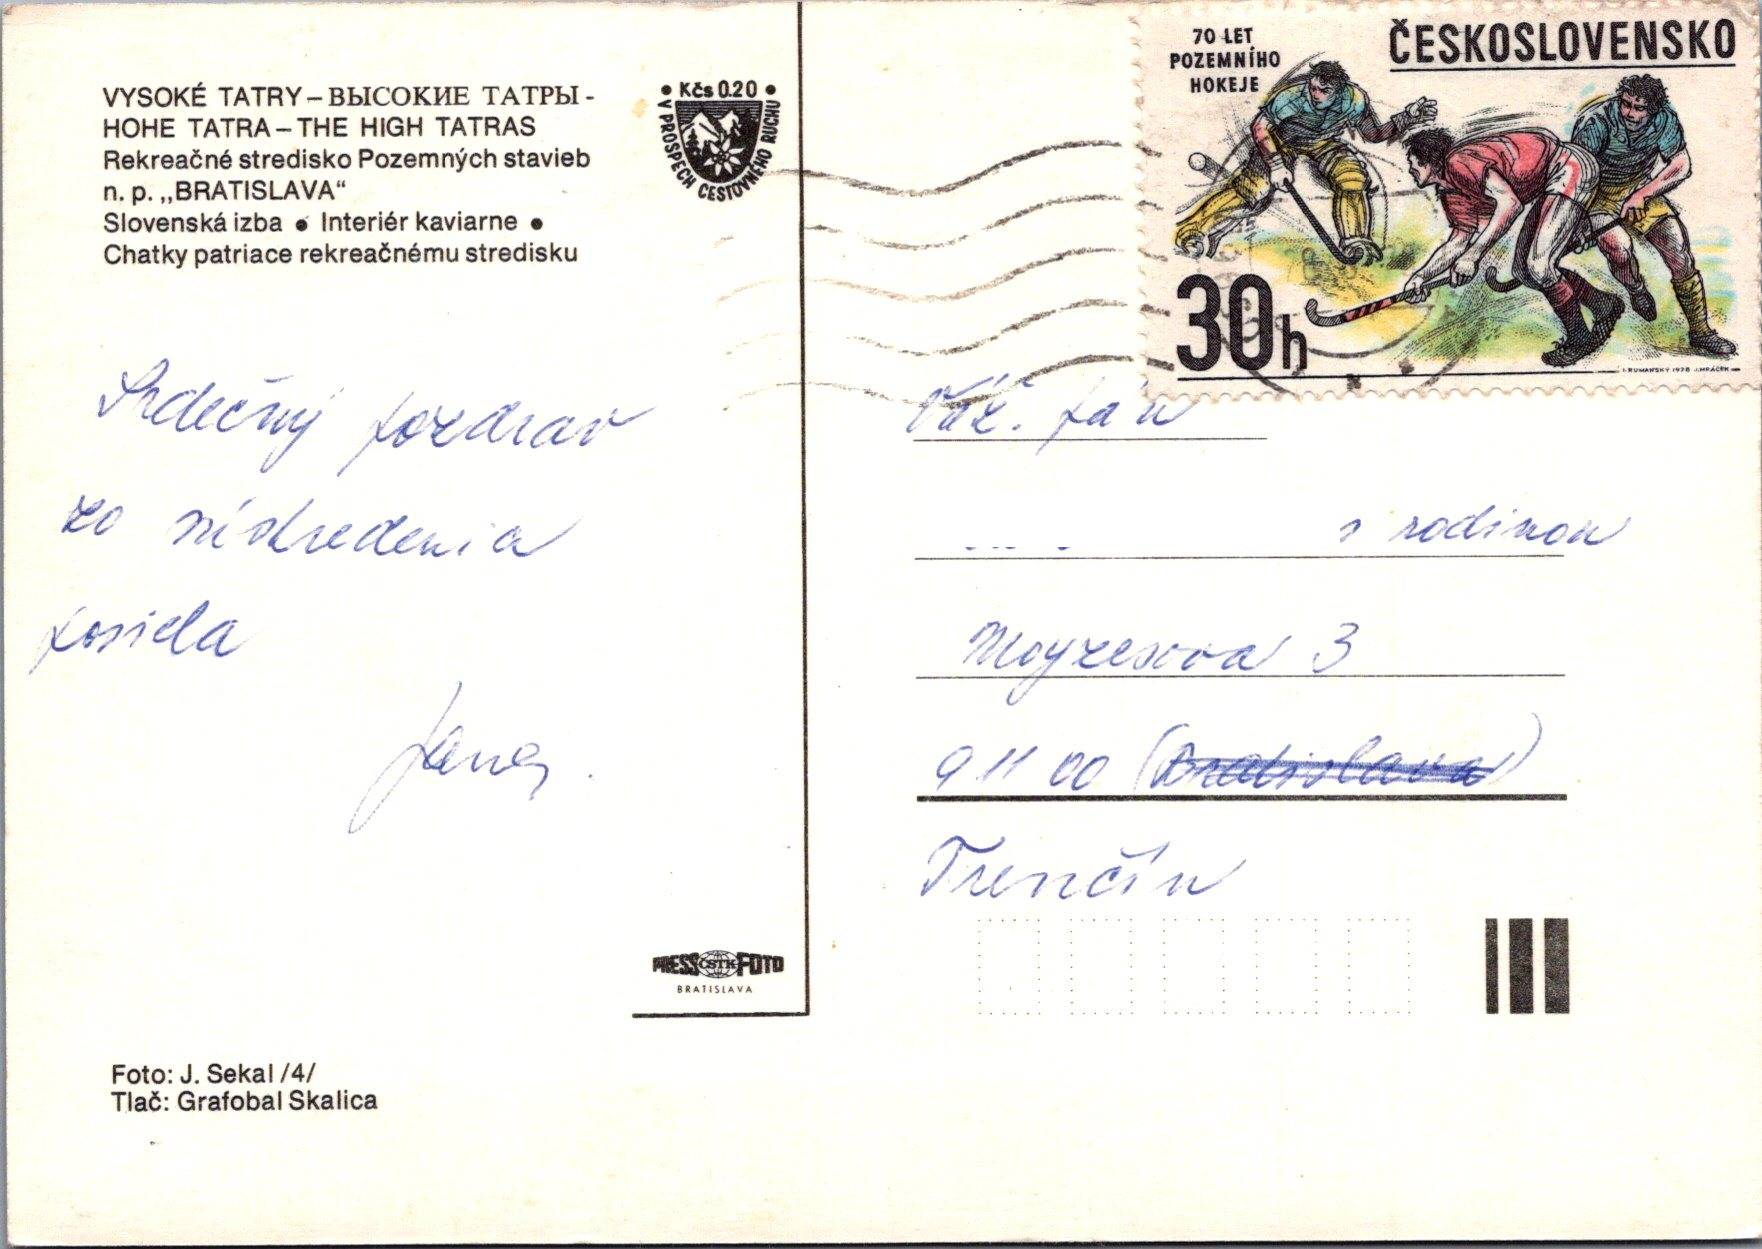 VYSOKÉ TATRY – ВЫСОКИЕ ТАТРЫ -
HOHE TATRA – THE HIGH TATRAS
Rekreačné stredisko Pozemných stavieb
n. p. ,,BRATISLAVA“
Slovenská izba ● Interiér kaviarne ●
Chatky patriace rekreačnému stredisku
• Kčs 0.20 •
V PROSPECH CESTOVNÉHO RUCHU
70 LET
POZEMNÍHO
HOKEJE
ČESKOSLOVENSKO
30h
I. RUMANSKÝ 1978 J. MRÁČEK
Srdečný pozdrav
zo sústredenia
posiela
Jana.
Váž. pán
s rodinou
Moyzesova 3
911 00 (Bratislava)
Trenčín
PRESS ČSTK FOTO
BRATISLAVA
Foto: J. Sekal /4/
Tlač: Grafobal Skalica